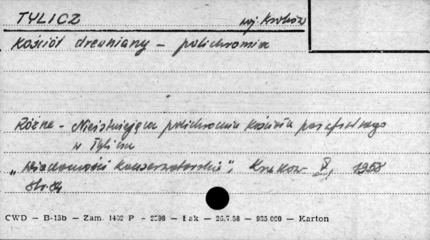 TYLICZ woj. Kraków
Kościół drewniany - polichromia
Różne - Nieistniejąca polichromia kościoła parafialnego
w Tyliczu
"Wiadomości Konserwatorskie", Kraków 1958
CWD — B-13b — Zam. 1402 P - 2598 — Łak — 26.7.58 — 935 000 — Karton